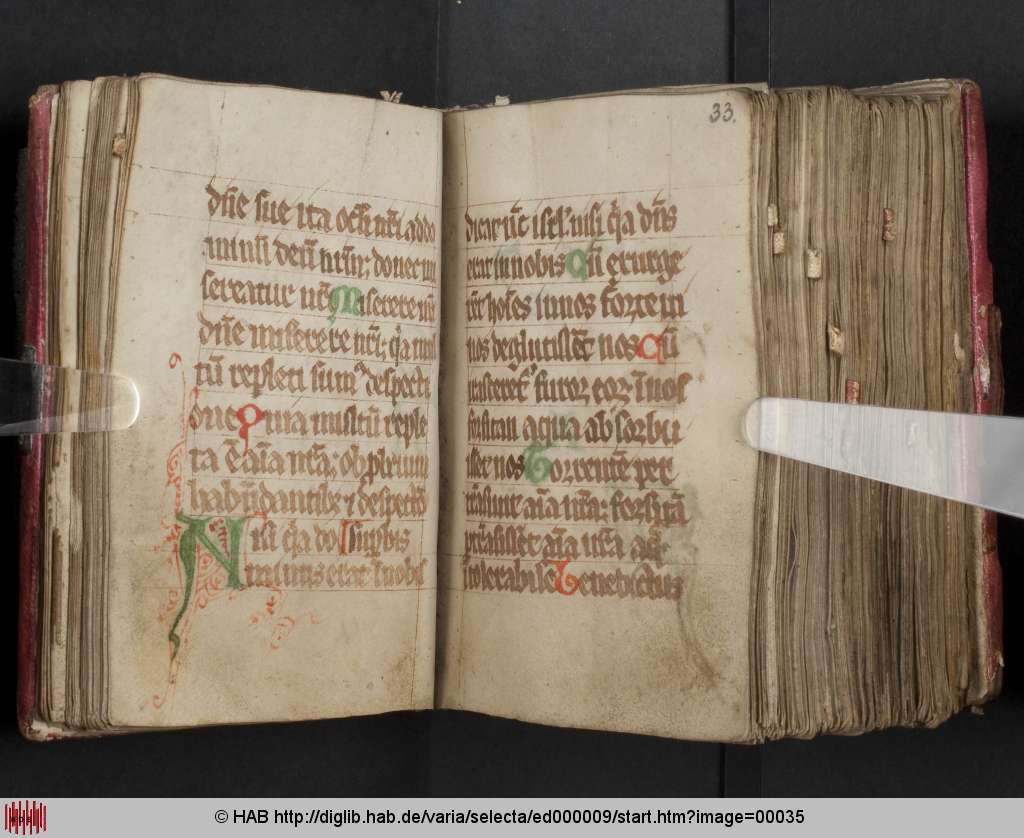 dn̄e sue ita och nr̄i ad do
minū deū nr̄m; donec mi
sereatur nr̄i Miserere nr̄i
dn̄e miserere nr̄i; q̄a mul
tū repleti sumꝰ despecti
one Quia multū reple
ta ē aīa nr̄a; obpleium
habūdantibꝫ ⁊ despectō
Nisi q̄a do supbis
minus erat ī nobis
33.
dicat nc̄ isrl' nisi q̄a dn̄s
erat in nobis Cū exurge
rēt hoīes in nos Forte ui
uos deglutissēt nos Cū
irasceret᷑ furor eorͥ ī nos
forsitan aqua absorbu
isset nos Torrentē per
trāsiuit aīa nr̄a; forsitā
ptrāsissēt aīa nr̄a aq̄
ītolerabilē Benedictus
© HAB http://diglib.hab.de/varia/selecta/ed000009/start.htm?image=00035